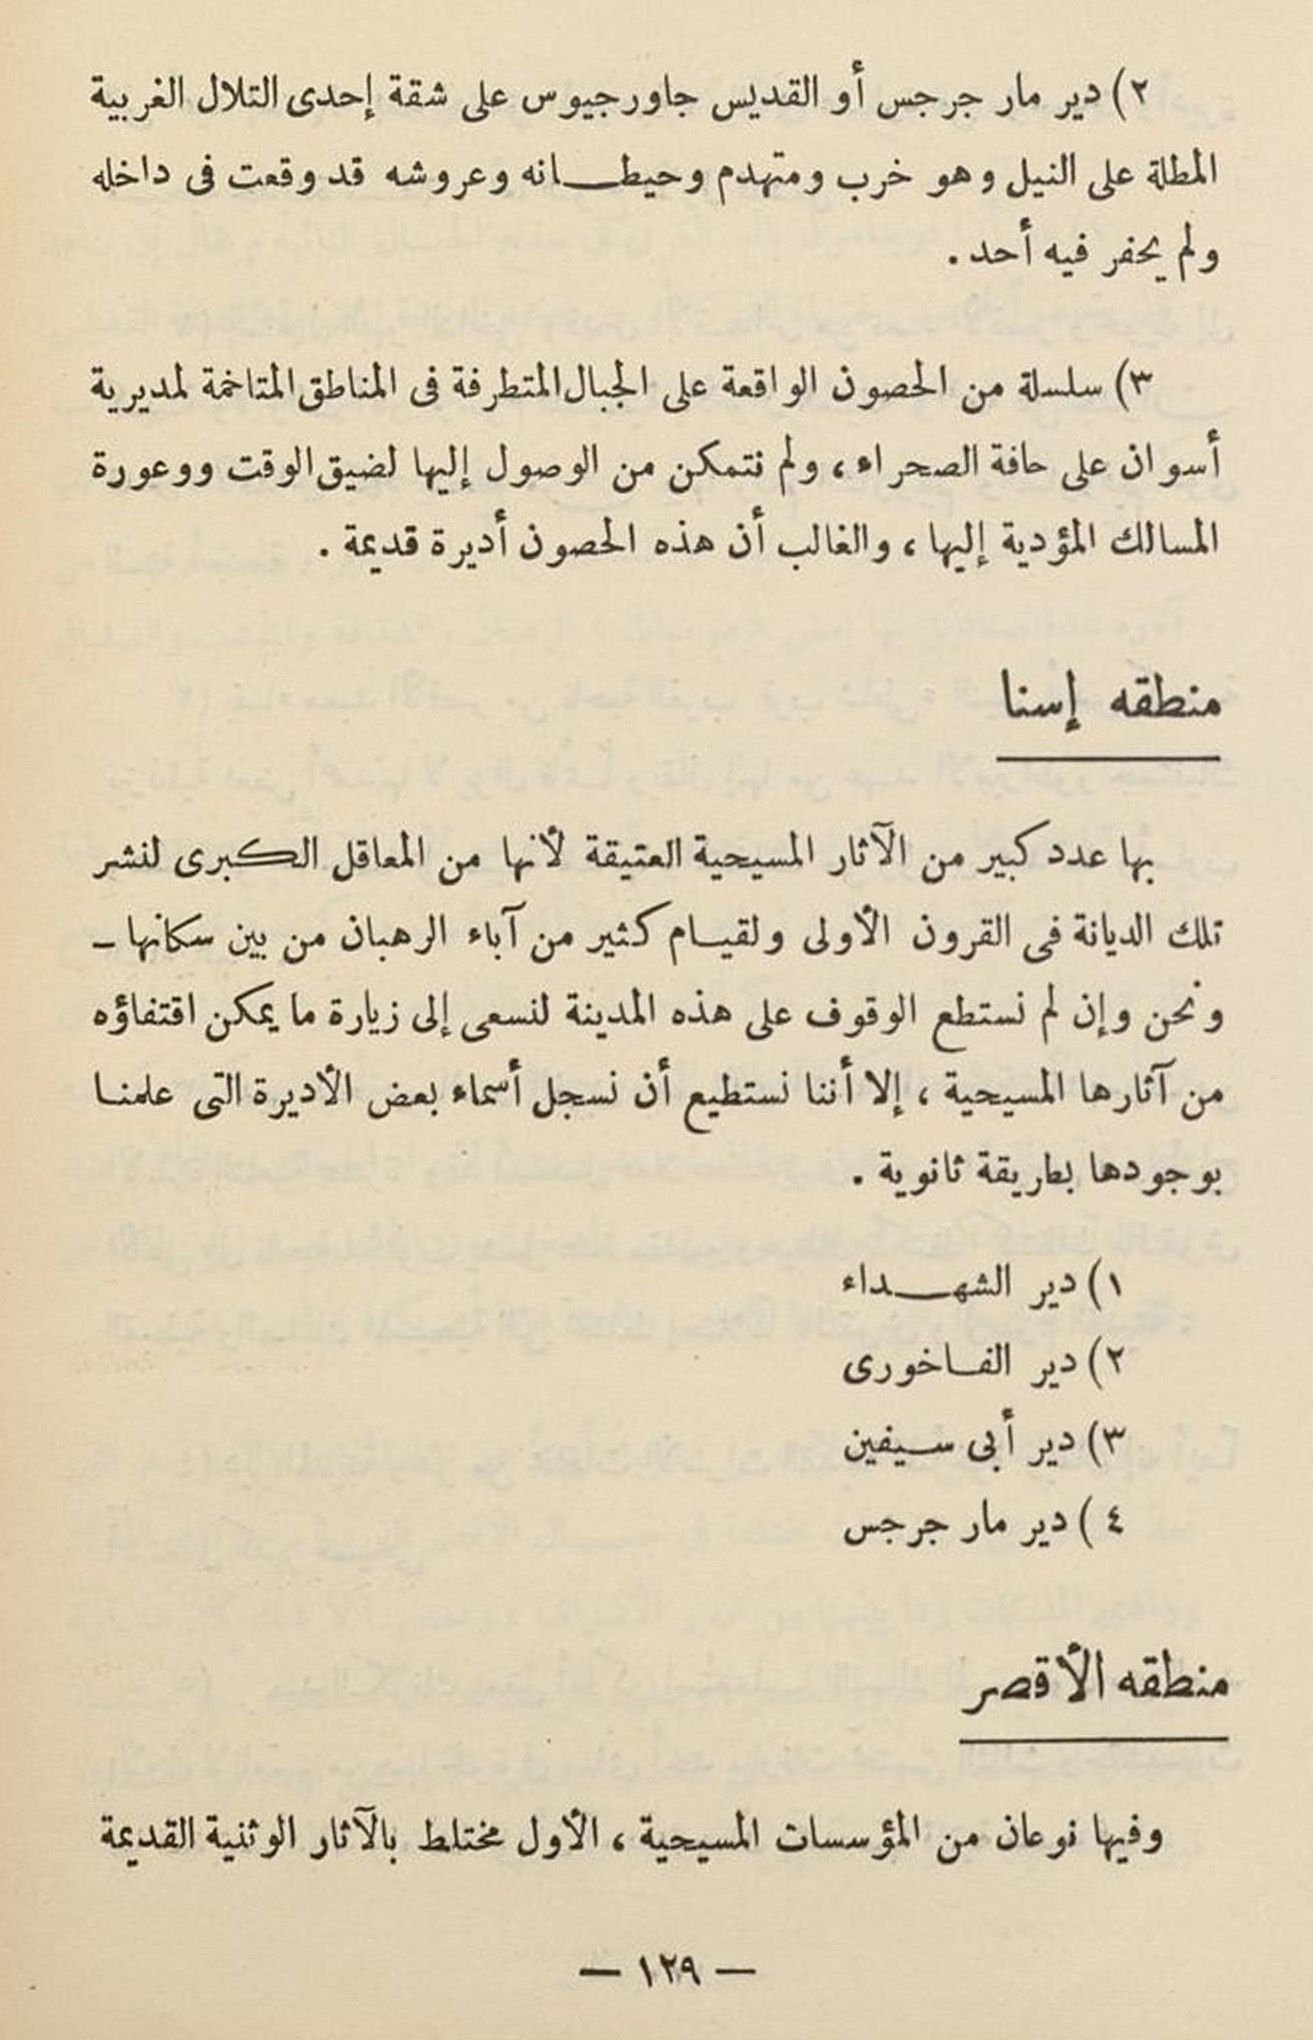 ٢) دير مار جرجس أو القديس جاورجيوس على شقة إحدى التلال الغربية
المطلة على النيل وهو خرب ومتهدم وحيطانه وعروشه قد وقعت فى داخله
ولم يحفر فيه أحد.
٣) سلسلة من الحصون الواقعة على الجبال المتطرفة فى المناطق المتاخمة لمديرية
أسوان على حافة الصحراء، ولم نتمكن من الوصول إليها لضيق الوقت ووعورة
المسالك المؤدية إليها، والغالب أن هذه الحصون أديرة قديمة.
منطقه إسنا
بها عدد كبير من الآثار المسيحية العتيقة لأنها من المعاقل الكبرى لنشر
تلك الديانة فى القرون الأولى ولقيام كثير من آباء الرهبان من بين سكانها -
ونحن وإن لم نستطع الوقوف على هذه المدينة لنسعى إلى زيارة ما يمكن اقتفاؤه
من آثارها المسيحية، إلا أننا نستطيع أن نسجل أسماء بعض الأديرة التى علمنا
بوجودها بطريقة ثانوية.
١) دير الشهداء
٢) دير الفاخورى
٣) دير أبى سيفين
٤) دير مار جرجس
منطقه الأقصر
وفيها نوعان من المؤسسات المسيحية، الأول مختلط بالآثار الوثنية القديمة
— ١٢٩ —